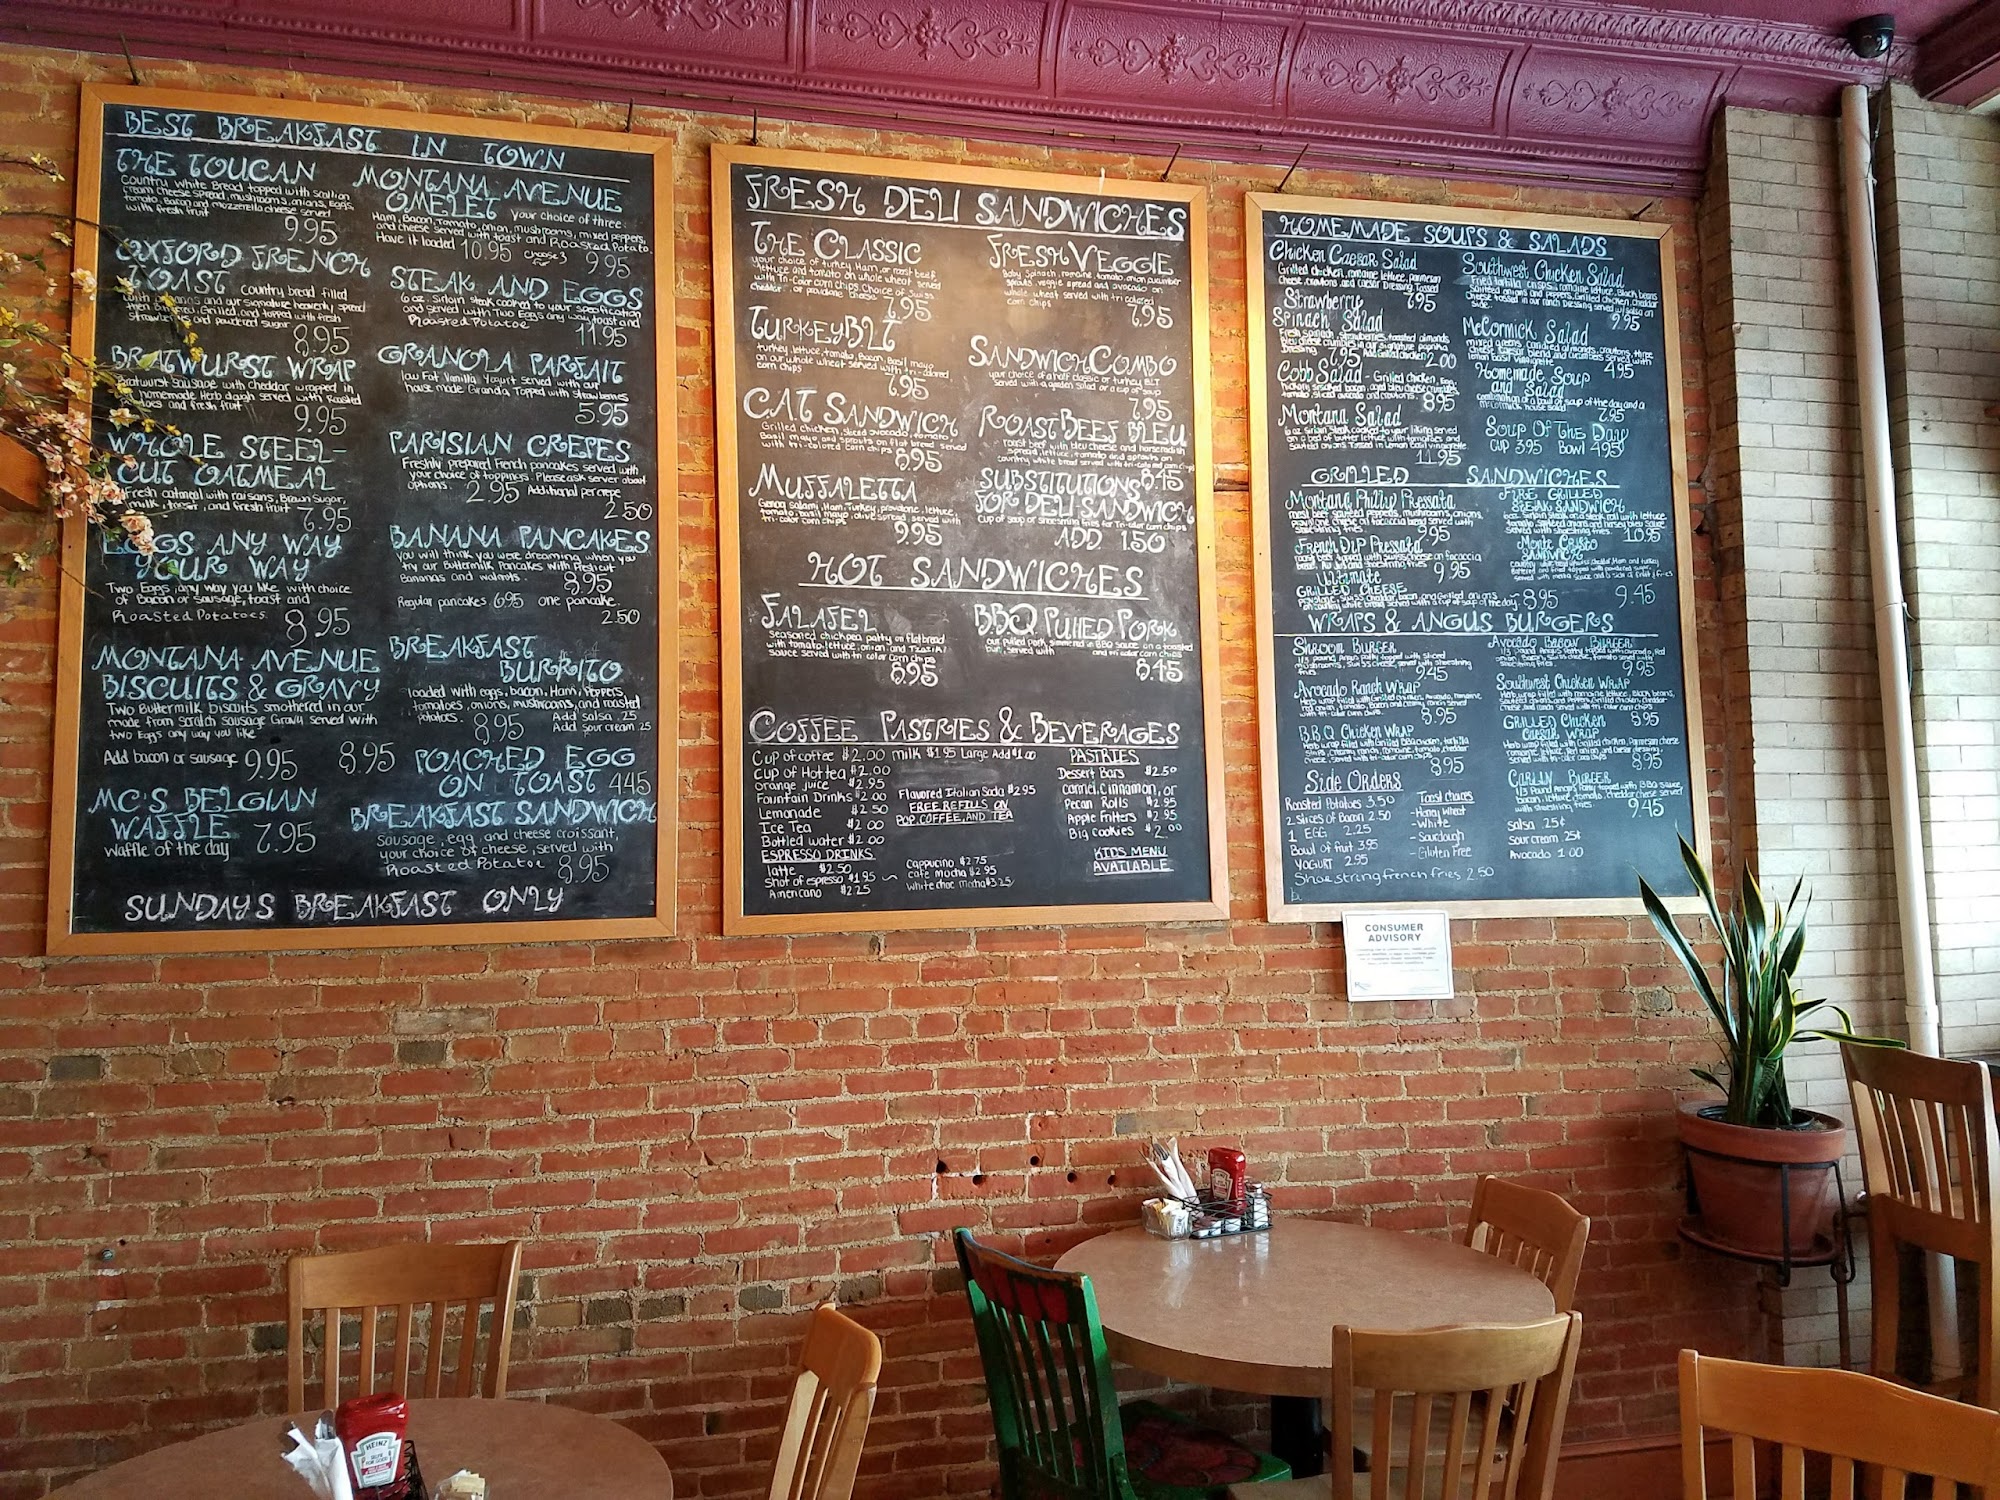 BEST BREAKFAST IN TOWN
THE TOUCAN
Country White Bread topped with Scallion
cream cheese spread, mushrooms, onions, Eggs,
tomato, Bacon and mozzerella cheese served
with fresh fruit
9.95
OXFORD FRENCH
TOAST country bread filled
with bananas and our signature heavenly spread
then Battered, Grilled, and topped with fresh
and powdered sugar
8.95
BRATWURST WRAP
Bratwurst Sausage with cheddar wrapped in
homemade Herb dough served with Roasted
and fresh fruit
9.95
WHOLE STEEL-
CUT OATMEAL
Fresh oatmeal with raisins, Brown Sugar,
milk, toast, and fresh fruit 7.95
EGGS ANY WAY
YOUR WAY
Two Eggs, any way you like with choice
of Bacon or Sausage, toast and
Roasted Potatoes. 8.95
MONTANA AVENUE
BISCUITS & GRAVY
Two Buttermilk biscuits smothered in our
made from scratch sausage Gravy served with
two Eggs any way you like
8.95
Add bacon or sausage 9.95
MC'S BELGIAN
WAFFLE 7.95
Waffle of the day
MONTANA AVENUE
OMELET your choice of three
Ham, Bacon, Tomato, onion, mushrooms, mixed peppers,
and cheese served with toast and Roasted Potato.
Have it loaded 10.95 choose 3
for 9.95
STEAK AND EGGS
6 oz. Sirloin steak cooked to your specification
and served with Two Eggs any way, toast and
Roasted Potatoe 11.95
GRANOLA PARFAIT
low Fat Vanilla Yogurt served with our
house made Granola Topped with strawberries
5.95
PARISIAN CREPES
Freshly prepared French pancakes served with
your choice of toppings. Please ask server about
options. 2.95 Additional per crepe
2.50
BANANA PANCAKES
You will think you were dreaming when you
try our Buttermilk Pancakes with Fresh cut
Bananas and walnuts. 8.95
Regular pancakes 6.95 one pancake
2.50
BREAKFAST
BURRITO
loaded with eggs, bacon, Ham, Peppers,
tomatoes, onions, mushrooms, and roasted
potatoes. 8.95 Add salsa .25
Add sour cream .25
POACHED EGG
ON TOAST 4.45
BREAKFAST SANDWICH
Sausage, egg, and cheese croissant,
your choice of cheese, served with
Roasted Potatoe 8.95
SUNDAYS BREAKFAST ONLY
FRESH DELI SANDWICHES
THE CLASSIC
your choice of turkey, Ham, or roast beef,
lettuce and tomato on whole wheat served
with Tri-Color corn chips Choice of Swiss
cheddar or provolone cheese
7.95
TURKEY BLT
turkey, lettuce, tomato, Bacon, Basil mayo
on our whole wheat served with tri-colored
corn chips 6.95
C.A.T SANDWICH
Grilled chicken, sliced avocado, tomato
Basil mayo and sprouts on flat bread served
with tri-colored corn chips 8.95
MUFFALETTA
Genoa salami, Ham, Turkey, provolone, lettuce,
tomato, basil mayo, olive spread served with
tri-color corn chips 9.95
FRESH VEGGIE
Baby Spinach, romaine, tomato, onion, cucumber
sprouts, veggie spread and avocado on
whole wheat served with tri colored
corn chips 7.95
SANDWICH COMBO
your choice of a half classic or turkey BLT
served with a garden salad or a cup of soup
7.95
ROAST BEEF BLEU
roast beef with bleu cheese and horseradish
spread, lettuce, tomato and sprouts on
country white bread served with tri-color corn chips
8.45
SUBSTITUTIONS
FOR DELI SANDWICH
cup of soup or shoestring fries for Tri-color corn chips
ADD 1.50
HOT SANDWICHES
FALAFEL
Seasoned chickpea patty on flatbread
with tomato, lettuce, onion, and Tzatziki
sauce served with tri color corn chips
8.95
BBQ PULLED PORK
our pulled pork, simmered in BBQ sauce on a toasted
bun, served with and tri color corn chips
8.45
COFFEE PASTRIES & BEVERAGES
Cup of coffee $2.00 milk $1.95 Large Add $1.00
Cup of Hot tea $2.00
Orange juice $2.95
Fountain Drinks $2.00
Lemonade $2.50
Ice Tea $2.00
Bottled water $2.00
Flavored Italian Soda $2.95
FREE REFILLS ON
POP, COFFEE, AND TEA
ESPRESSO DRINKS
latte $2.50
Shot of espresso $1.95
Americano $2.25
Cappucino $2.75
cafe mocha $2.95
White choc mocha $3.25
PASTRIES
Dessert Bars $2.50
Carmel, cinnamon, or
Pecan Rolls $2.95
Apple Fritters $2.95
Big cookies $2.00
KIDS MENU
AVAILABLE
HOMEMADE SOUPS & SALADS
Chicken Caesar Salad
Grilled chicken, romaine lettuce, parmesan
cheese, croutons and caesar Dressing Tossed
7.95
Strawberry
Spinach Salad
Fresh spinach, strawberries, toasted almonds
bleu cheese crumbles in our signature paprika
Dressing 7.95 Add Grilled chicken 2.00
Cobb Salad - Grilled chicken, Egg,
8.95
Montana Salad
6 oz. Sirloin Steak cooked to your liking served
on a bed of butter lettuce with tomatoes, and
sauteed onions Tossed in Lemon Basil vinaigrette
11.95
Southwest Chicken Salad
Fried tortilla crisps, romaine lettuce, Black beans
sauteed onions and peppers, Grilled chicken, cheddar
cheese tossed in our ranch Dressing served w/ salsa on
side. 9.95
McCormick Salad
mixed greens, candied almonds, croutons, three
cheese blend and cucumbers served with
lemon basil vinaigrette
4.95
Homemade Soup
and Salad
combination of a bowl of soup of the day and a
McCormick house salad 7.95
Soup Of The Day
cup 3.95 Bowl 4.95
GRILLED SANDWICHES
Montana Philly Pressata
roast beef, sauteed peppers, mushrooms, onions,
provolone cheese on focaccia bread served with
shoestring fries 9.95
French Dip Pressata
roast beef topped with swiss cheese on focaccia
bread, Au Jus and shoestring fries. 9.95
Ultimate
GRILLED CHEESE
provolone, swiss, cheddar, bacon, and Grilled onions
on country white bread served with a cup of soup of the day - 8.95
FIRE GRILLED
STEAK SANDWICH
6oz. sirloin steak on a steak roll with lettuce,
tomato, sauteed onions and horsey bleu sauce
served with shoestring fries. 10.95
Monte Cristo
SANDWICH
9.45
WRAPS & ANGUS BURGERS
Shroom BURGER
1/3 pound Angus patty topped with sliced
mushrooms, swiss cheese, served with shoestring
fries 9.45
Avocado Ranch WRAP
Herb wrap filled with Grilled chicken, Avocado, romaine
red onion, tomato, Bacon and creamy ranch served
with tri-color corn chips 8.95
B.B.Q Chicken WRAP
Herb wrap filled with Grilled BBQ chicken, tortilla
strips, creamy ranch, romaine, tomato, cheddar
cheese, served with tri-color corn chips
8.95
Avocado Bacon BURGER
9.95
Southwest Chicken WRAP
Herb wrap filled with romaine lettuce, Black beans,
sauteed onions, and Peppers, Grilled chicken, cheddar
cheese and ranch served with tri-color corn chips
8.95
GRILLED Chicken
Caesar WRAP
Herb wrap filled with Grilled chicken, Parmesan cheese
romaine lettuce, Red onion, and Caesar dressing
served with tri-color corn chips 8.95
BURGER
1/3 Pound Angus Patty topped with BBQ sauce
bacon, lettuce, tomato, cheddar cheese served
with shoestring fries. 9.45
Side Orders
Roasted Potatoes 3.50
2 slices of Bacon 2.50
1 EGG 2.25
Bowl of fruit 3.95
YOGURT 2.95
Shoe string french fries 2.50
Toast choices
- Honey Wheat
- White
- Sourdough
- Gluten Free
Salsa .25¢
Sour cream .25¢
Avocado 1.00
CONSUMER
ADVISORY
HEINZ